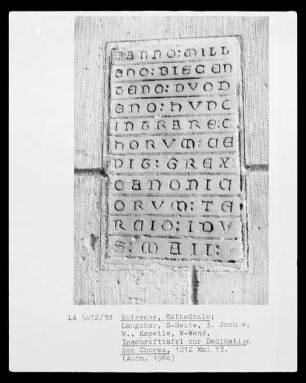 ANNO : MILL
ENO : BISCEN
TENO : DVOD
ENO : HVNC
INTRARE : C
HORVM : CE
PIT : GREX
CANONIC
ORVM : TE
RCIO : IDV
S : MAII :
LA 5672/38 Soissons, Kathedrale;
Langchor, S-Seite, 3. Joch v.
W., Kapelle, W-Wand,
Inschrifttafel zur Dedikation
des Chores, 1212 Mai 13.
(Aufn. 1984)